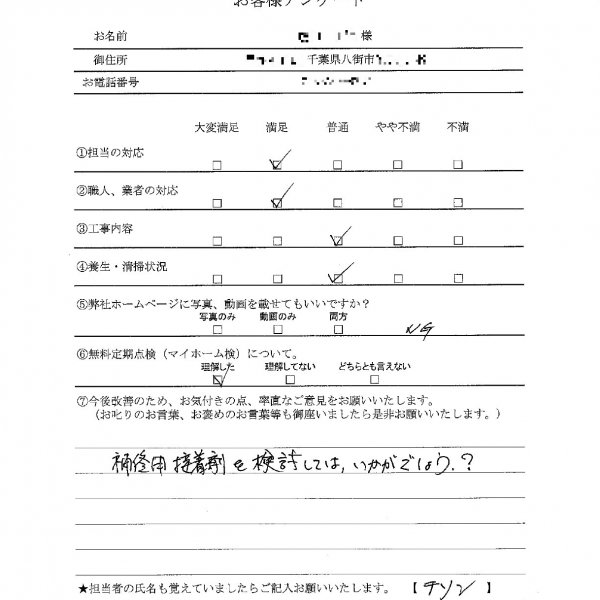 お客様アンケート
お名前 様
御住所 千葉県八街市
お電話番号
大変満足 満足 普通 やや不満 不満
①担当の対応
②職人、業者の対応
③工事内容
④養生・清掃状況
⑤弊社ホームページに写真、動画を載せてもいいですか？
写真のみ 動画のみ 両方
NG
⑥無料定期点検（マイホーム検）について。
理解した 理解してない どちらとも言えない
⑦今後改善のため、お気付きの点、率直なご意見をお願いいたします。
（お叱りのお言葉、お褒めのお言葉等も御座いましたら是非お願いいたします。）
補修用接着剤を検討しては、いかがでしょう.？
★担当者の氏名も覚えていましたらご記入お願いいたします。 【 】